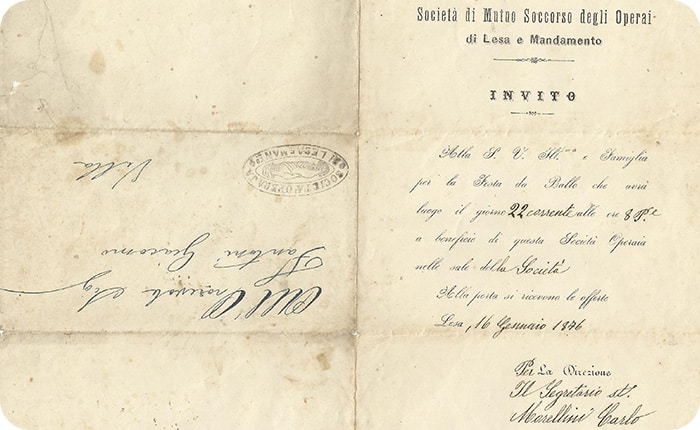 Società di Mutuo Soccorso degli Operai
di Lesa e Mandamento
INVITO
Alla S. V. Ill.ma e Famiglia
per la Festa da Ballo che avrà
luogo il giorno 22 corrente alle ore 8 P.e
a beneficio di questa Società Operaia
nelle sale della Società
Alla porta si ricevono le offerte
Lesa, 16 Gennaio 1876
Per La Direzione
Il Segretario st.
Morellini Carlo
All'Onorevole Sig
Fantoni Giacomo
Villa
SOCIETA OPERAJA
DI LESA E MAN.TO